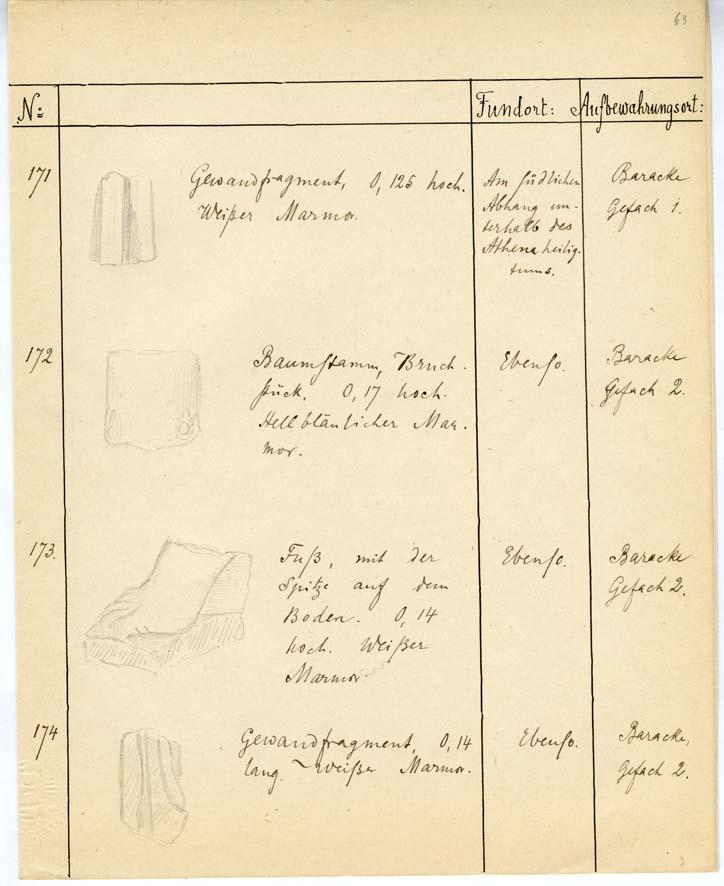 63
N<u>o</u>: Fundort: Aufbewahrungsort:
171 Gewandfragment, 0,125 hoch. Am südlichen Baracke
Weißer Marmor. Abhang un- Gefach 1.
terhalb des
Athenaheilig-
tums.
172 Baumstamm, Bruch- Ebenso. Baracke
stück. 0,17 hoch. Gefach 2.
Hellbläulicher Mar-
mor.
173. Fuß, mit der Ebenso. Baracke
Spitze auf dem Gefach 2.
Boden. 0,14
hoch. Weißer
Marmor.
174 Gewandfragment, 0,14 Ebenso. Baracke,
lang. Weißer Marmor. Gefach 2.